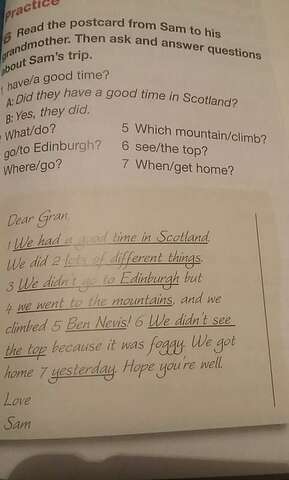 Practice
6 Read the postcard from Sam to his
grandmother. Then ask and answer questions
about Sam's trip.
1 have/a good time?
A: Did they have a good time in Scotland?
B: Yes, they did.
What/do?
go/to Edinburgh?
Where/go?
5 Which mountain/climb?
6 see/the top?
7 When/get home?
Dear Gran,
1 We had a good time in Scotland.
We did 2 lots of different things.
3 We didn't go to Edinburgh but
4 we went to the mountains, and we
climbed 5 Ben Nevis! 6 We didn't see
the top because it was foggy. We got
home 7 yesterday. Hope you're well.
Love
Sam